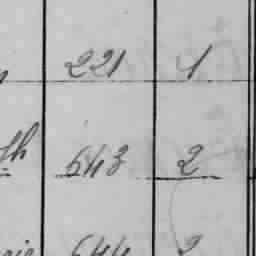 221 1
th 543 2
544 2